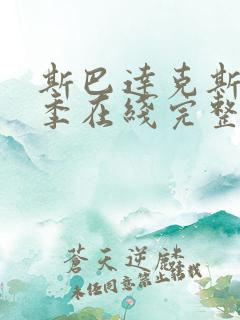 斯巴達克斯
季在綫完整
蒼天逆麟
未经同意禁止转载